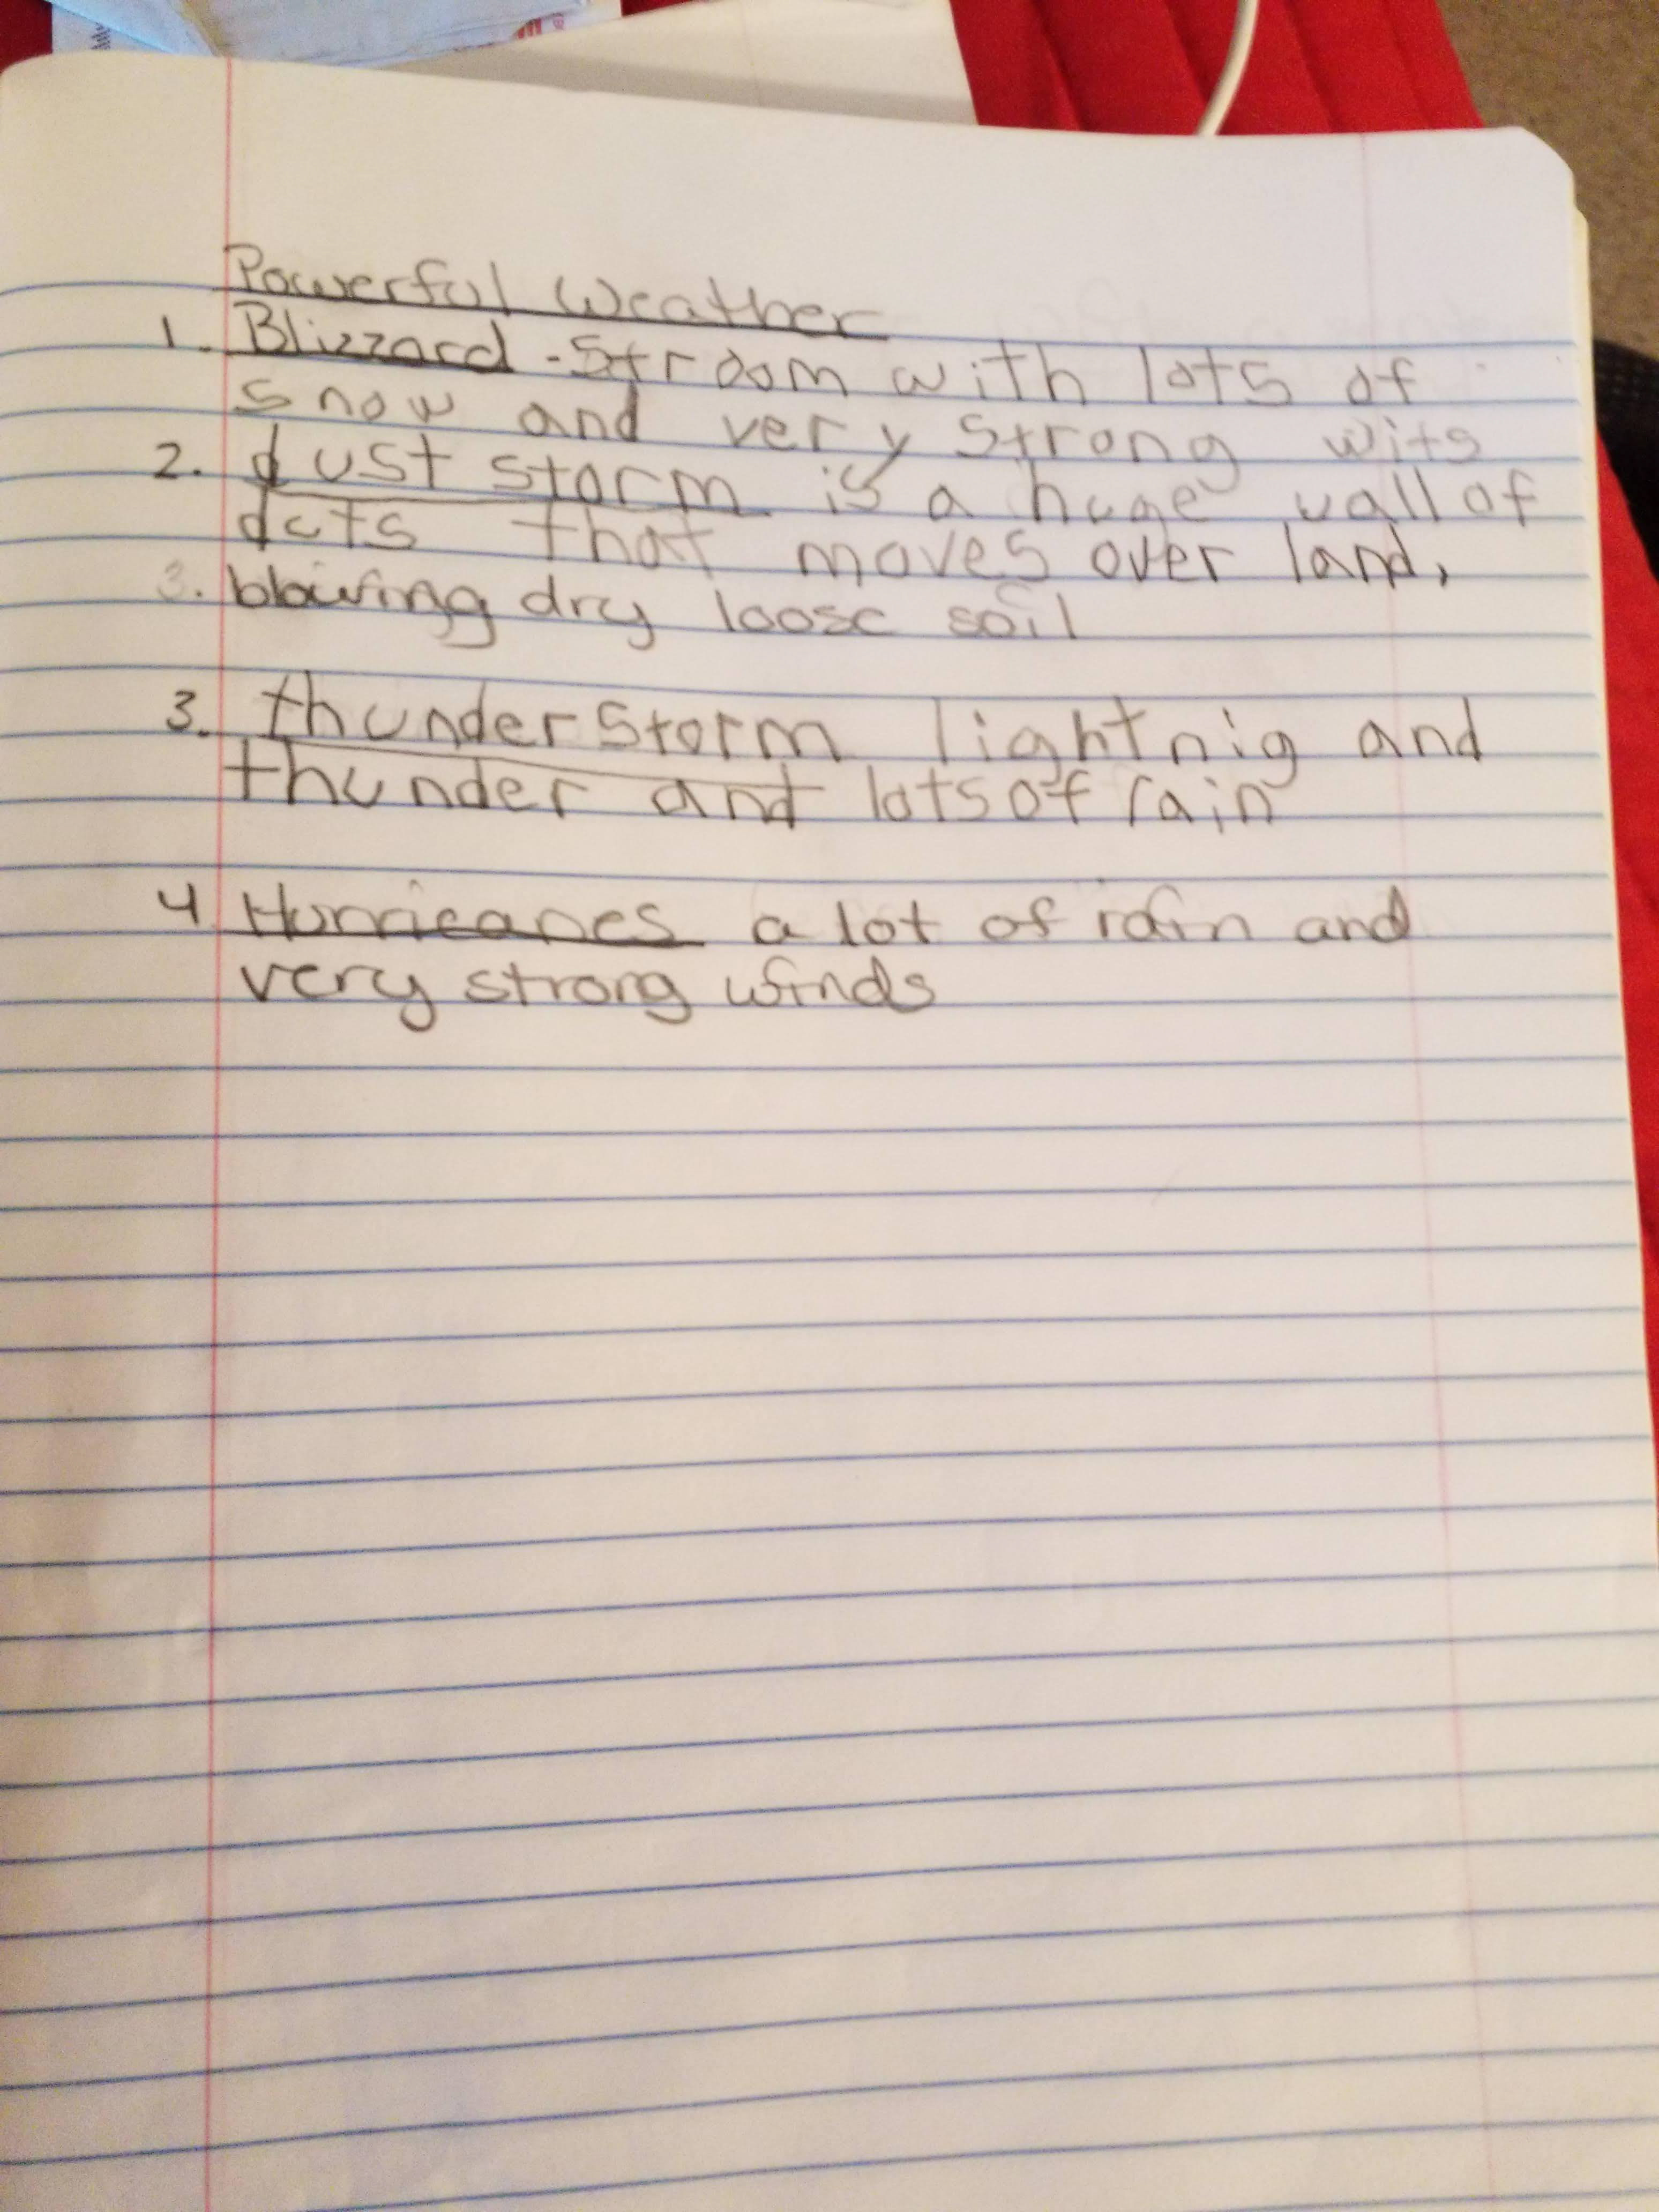 Powerful Weather
1. Blizzard - Stroom with lots of
snow and very strong wits
2. dust storm is a huge wall of
dcts that moves over land,
3. blowing dry loose soil
3. thunder Storm lightnig and
thunder and lots of rain
4 Hurricanes a lot of rain and
very strong winds